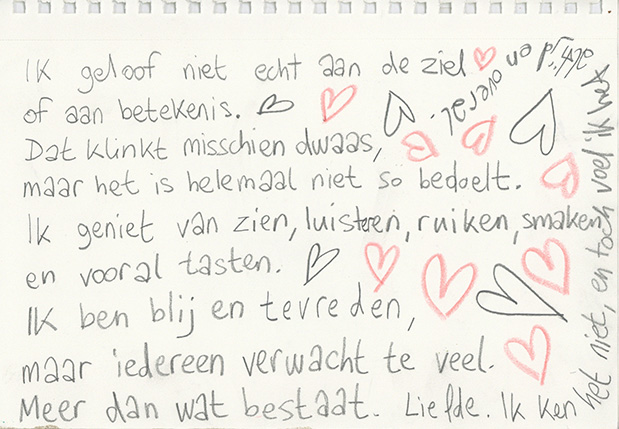 Ik geloof niet echt aan de ziel
of aan betekenis.
Dat klinkt misschien dwaas,
maar het is helemaal niet so bedoelt.
Ik geniet van zien, luisteren, ruiken, smaken
en vooral tasten.
Ik ben blij en tevreden,
maar iedereen verwacht te veel.
Meer dan wat bestaat. Liefde. Ik ken
het niet, en toch voel ik het
altijd en overal.